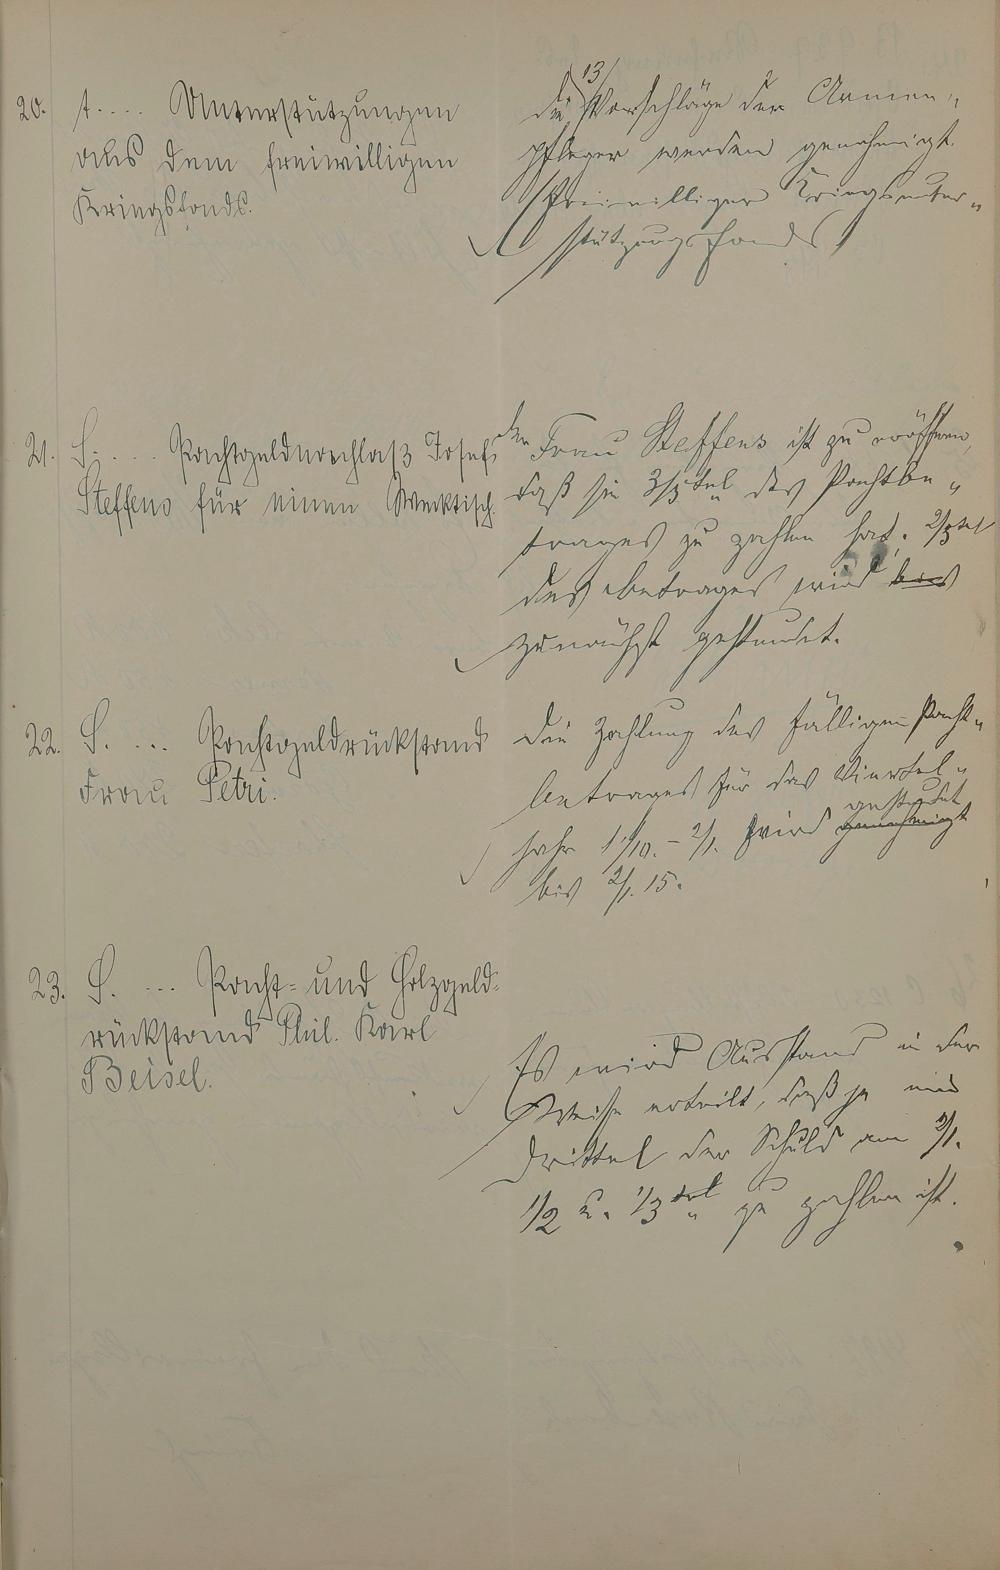 20. A. ... Unterstützungen
aus dem freiwilligen
Kriegsfonds.
13
die Vorschläge der Armen-
pfleger werden genehmigt.
(Freiwilliger Kriegsunter-
stützungsfonds)
21. S. ... Pachtgeldnachlaß Josef
Steffens für einen Marktisch.
der Frau Steffens ist zu eröffnen,
daß sie 3/5tel des Pachtbe-
trages zu zahlen hat. 2/5tel
des Betrages wird bis
zunächst gestundet.
22. S. ... Pachtgeldrückstand
Frau Petri.
Die Zahlung des fälligen Pacht-
betrages für das Viertel-
jahr 1/10. - 2/1. wird genehmigt gestundet
bis 2/1. 15.
23. S. ... Pacht- und Holzgeld-
rückstand Phil. Karl
Beisel.
Es wird Ausstand in der
Weise erteilt, daß je ein
Drittel der Schuld am 2/1.
1/2 u. 1/3 zu zahlen ist.